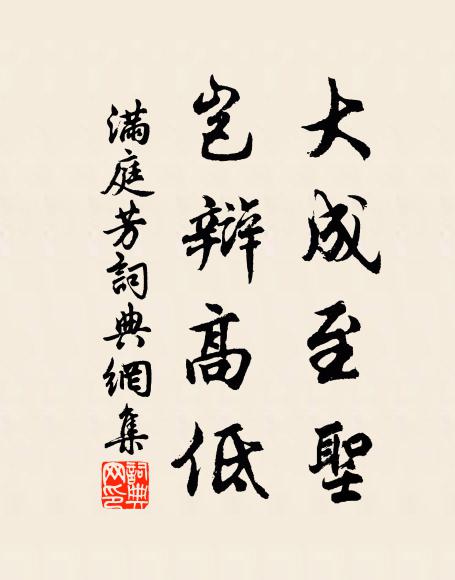 大成至聖
豈辯高低
滿庭芳詞典網集
詞典网印